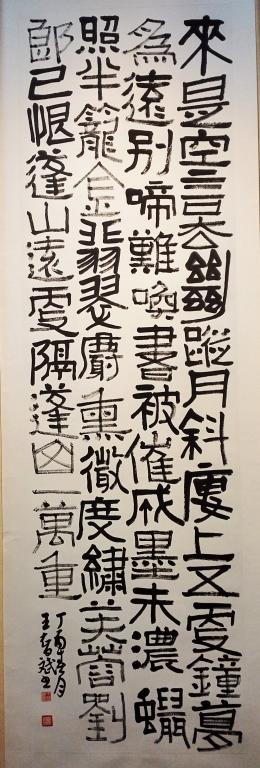 來是空言去絕蹤月斜樓上五更鐘夢
為遠別啼難喚書被催成墨未濃蠟
照半籠金翡翠麝熏微度繡芙蓉劉
郎已恨蓬山遠更隔蓬山一萬重
丁酉月
王智斌书